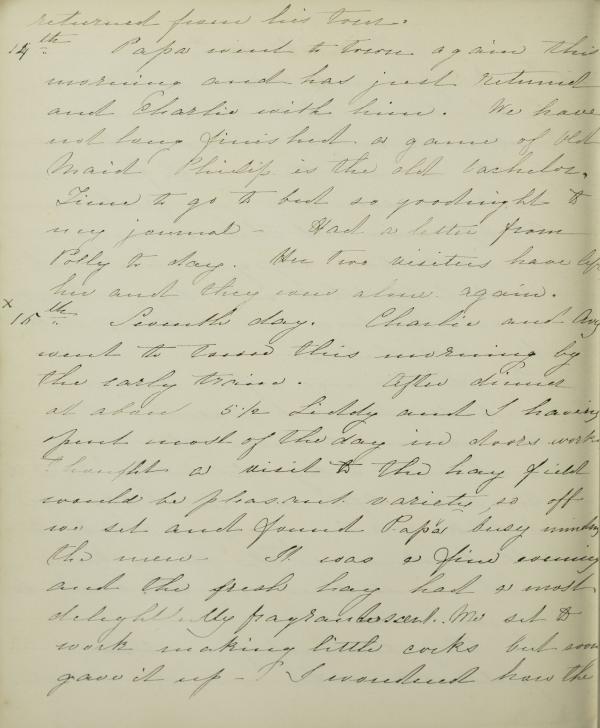 returned from his town.
14th Papa went to town again this
morning and has just returned
and Charlie with him. We have
not long finished a game of Old
Maid Philip is the old bachelor.
Time to go to bed so goodnight to
my journal - Had a letter from
Polly to day. Her two visitors have left
her and they were alone again.
x 15th Seventh day. Charlie and
went to town this morning by
the early train. After dinner
at about 5 1/2 Liddy and I having
spent most of the day in doors work
thought a visit to the hay field
would be pleasant variety, so off
we set and found Papa busy
the men - It was a fine evening
and the fresh hay had a most
delightfully fragrant scent. We set to
work making little cocks but soon
gave it up - I wondered how the